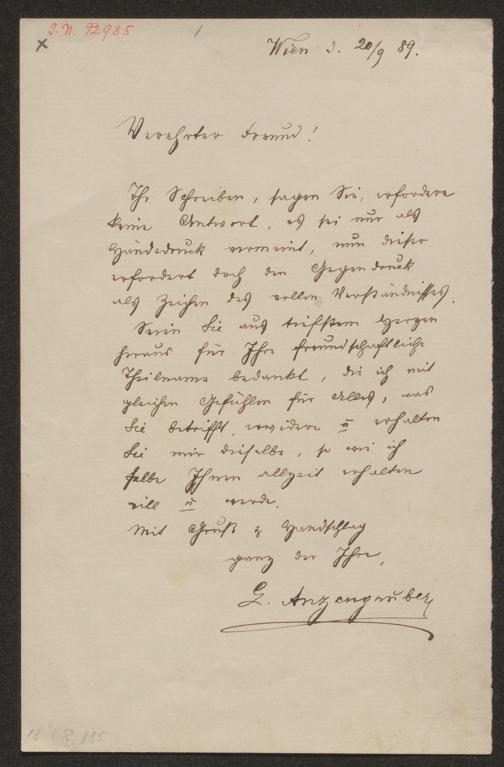 I. N. 92985
Wien d. 20/9 89.
Verehrter Freund!
Ihr Schreiben, sagen Sie, erfordere
keine Antwort, es sei nur als
Händedruck vermeint, nun dieser
erfordert doch den Gegendruck
als Zeichen des vollen Verständnisses.
Seien Sie aus tiefstem Herzen
heraus für Ihre freundschaftliche
Theilname bedankt, die ich mit
gleichen Gefühlen für Alles, was
Sie betrifft, erwidere u erhalten
Sie mir dieselbe, so wie ich
selbe Ihnen allzeit erhalten
will u werde.
Mit Gruß & Handschlag
ganz der Ihre,
L. Anzengruber